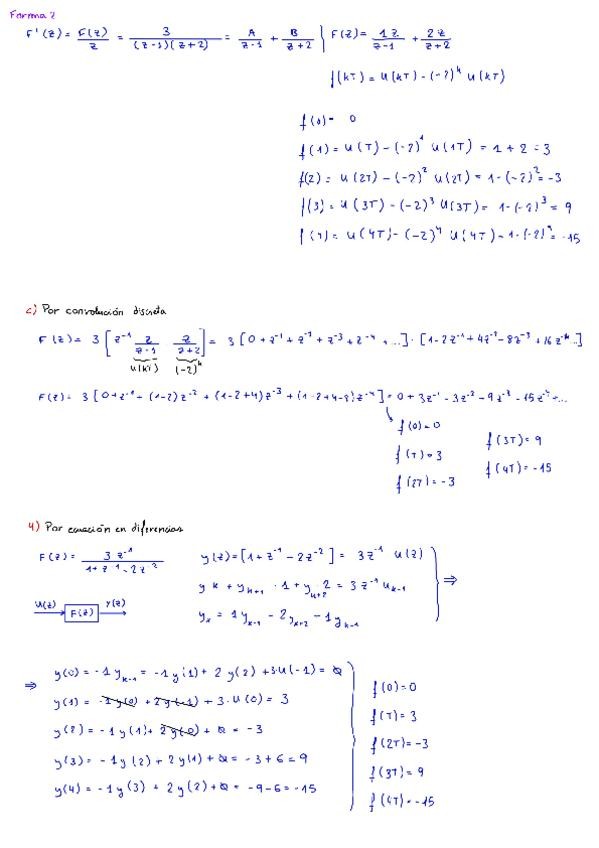 Forma 2
F'(z) = F(z)/z = 3/((z-1)(z+2)) = A/(z-1) + B/(z+2) | F(z) = 1z/(z-1) + 2z/(z+2)
f(kT) = u(kT) - (-2)^k u(kT)
f(0) = 0
f(1) = u(T) - (-2)^1 u(1T) = 1 + 2 = 3
f(2) = u(2T) - (-2)^2 u(2T) = 1 - (-2)^2 = -3
f(3) = u(3T) - (-2)^3 u(3T) = 1 - (-2)^3 = 9
f(4) = u(4T) - (-2)^4 u(4T) - 1 - (-2)^4 = -15
c) Por convolución discreta
F(z) = 3 [z^-1 z/(z-1) z/(z+2)] = 3 [0 + z^-1 + z^-2 + z^-3 + z^-4 + ...] · [1 - 2z^-1 + 4z^-2 - 8z^-3 + 16z^-4 ...]
u(kT) (-2)^k
F(z) = 3 [0 + z^-1 + (1-2)z^-2 + (1-2+4)z^-3 + (1-2+4-8)z^-4] = 0 + 3z^-1 - 3z^-2 - 9z^-3 - 15z^-4 + ...
f(0) = 0
f(T) = 3
f(2T) = -3
f(3T) = 9
f(4T) = -15
4) Por ecuación en diferencias
F(z) = 3z^-1/(1 + z^-1 - 2z^-2)
y(z) = [1 + z^-1 - 2z^-2] = 3z^-1 u(z)
yk + y_k+1 · 1 + y_k+2 2 = 3z^-1 u_k-1
y_k = 1y_k-1 - 2y_k+2 - 1y_k-1
⇒
U(z) F(z) Y(z)
⇒ y(0) = -1y_k-1 = -1y(1) + 2y(2) + 3·u(-1) = 0
y(1) = -1y(0) + 2y(-1) + 3·u(0) = 3
y(2) = -1y(1) + 2y(0) + 0 = -3
y(3) = -1y(2) + 2y(1) + 0 = -3+6 = 9
y(4) = -1y(3) + 2y(2) + 0 = -9-6 = -15
f(0) = 0
f(T) = 3
f(2T) = -3
f(3T) = 9
f(4T) = -15